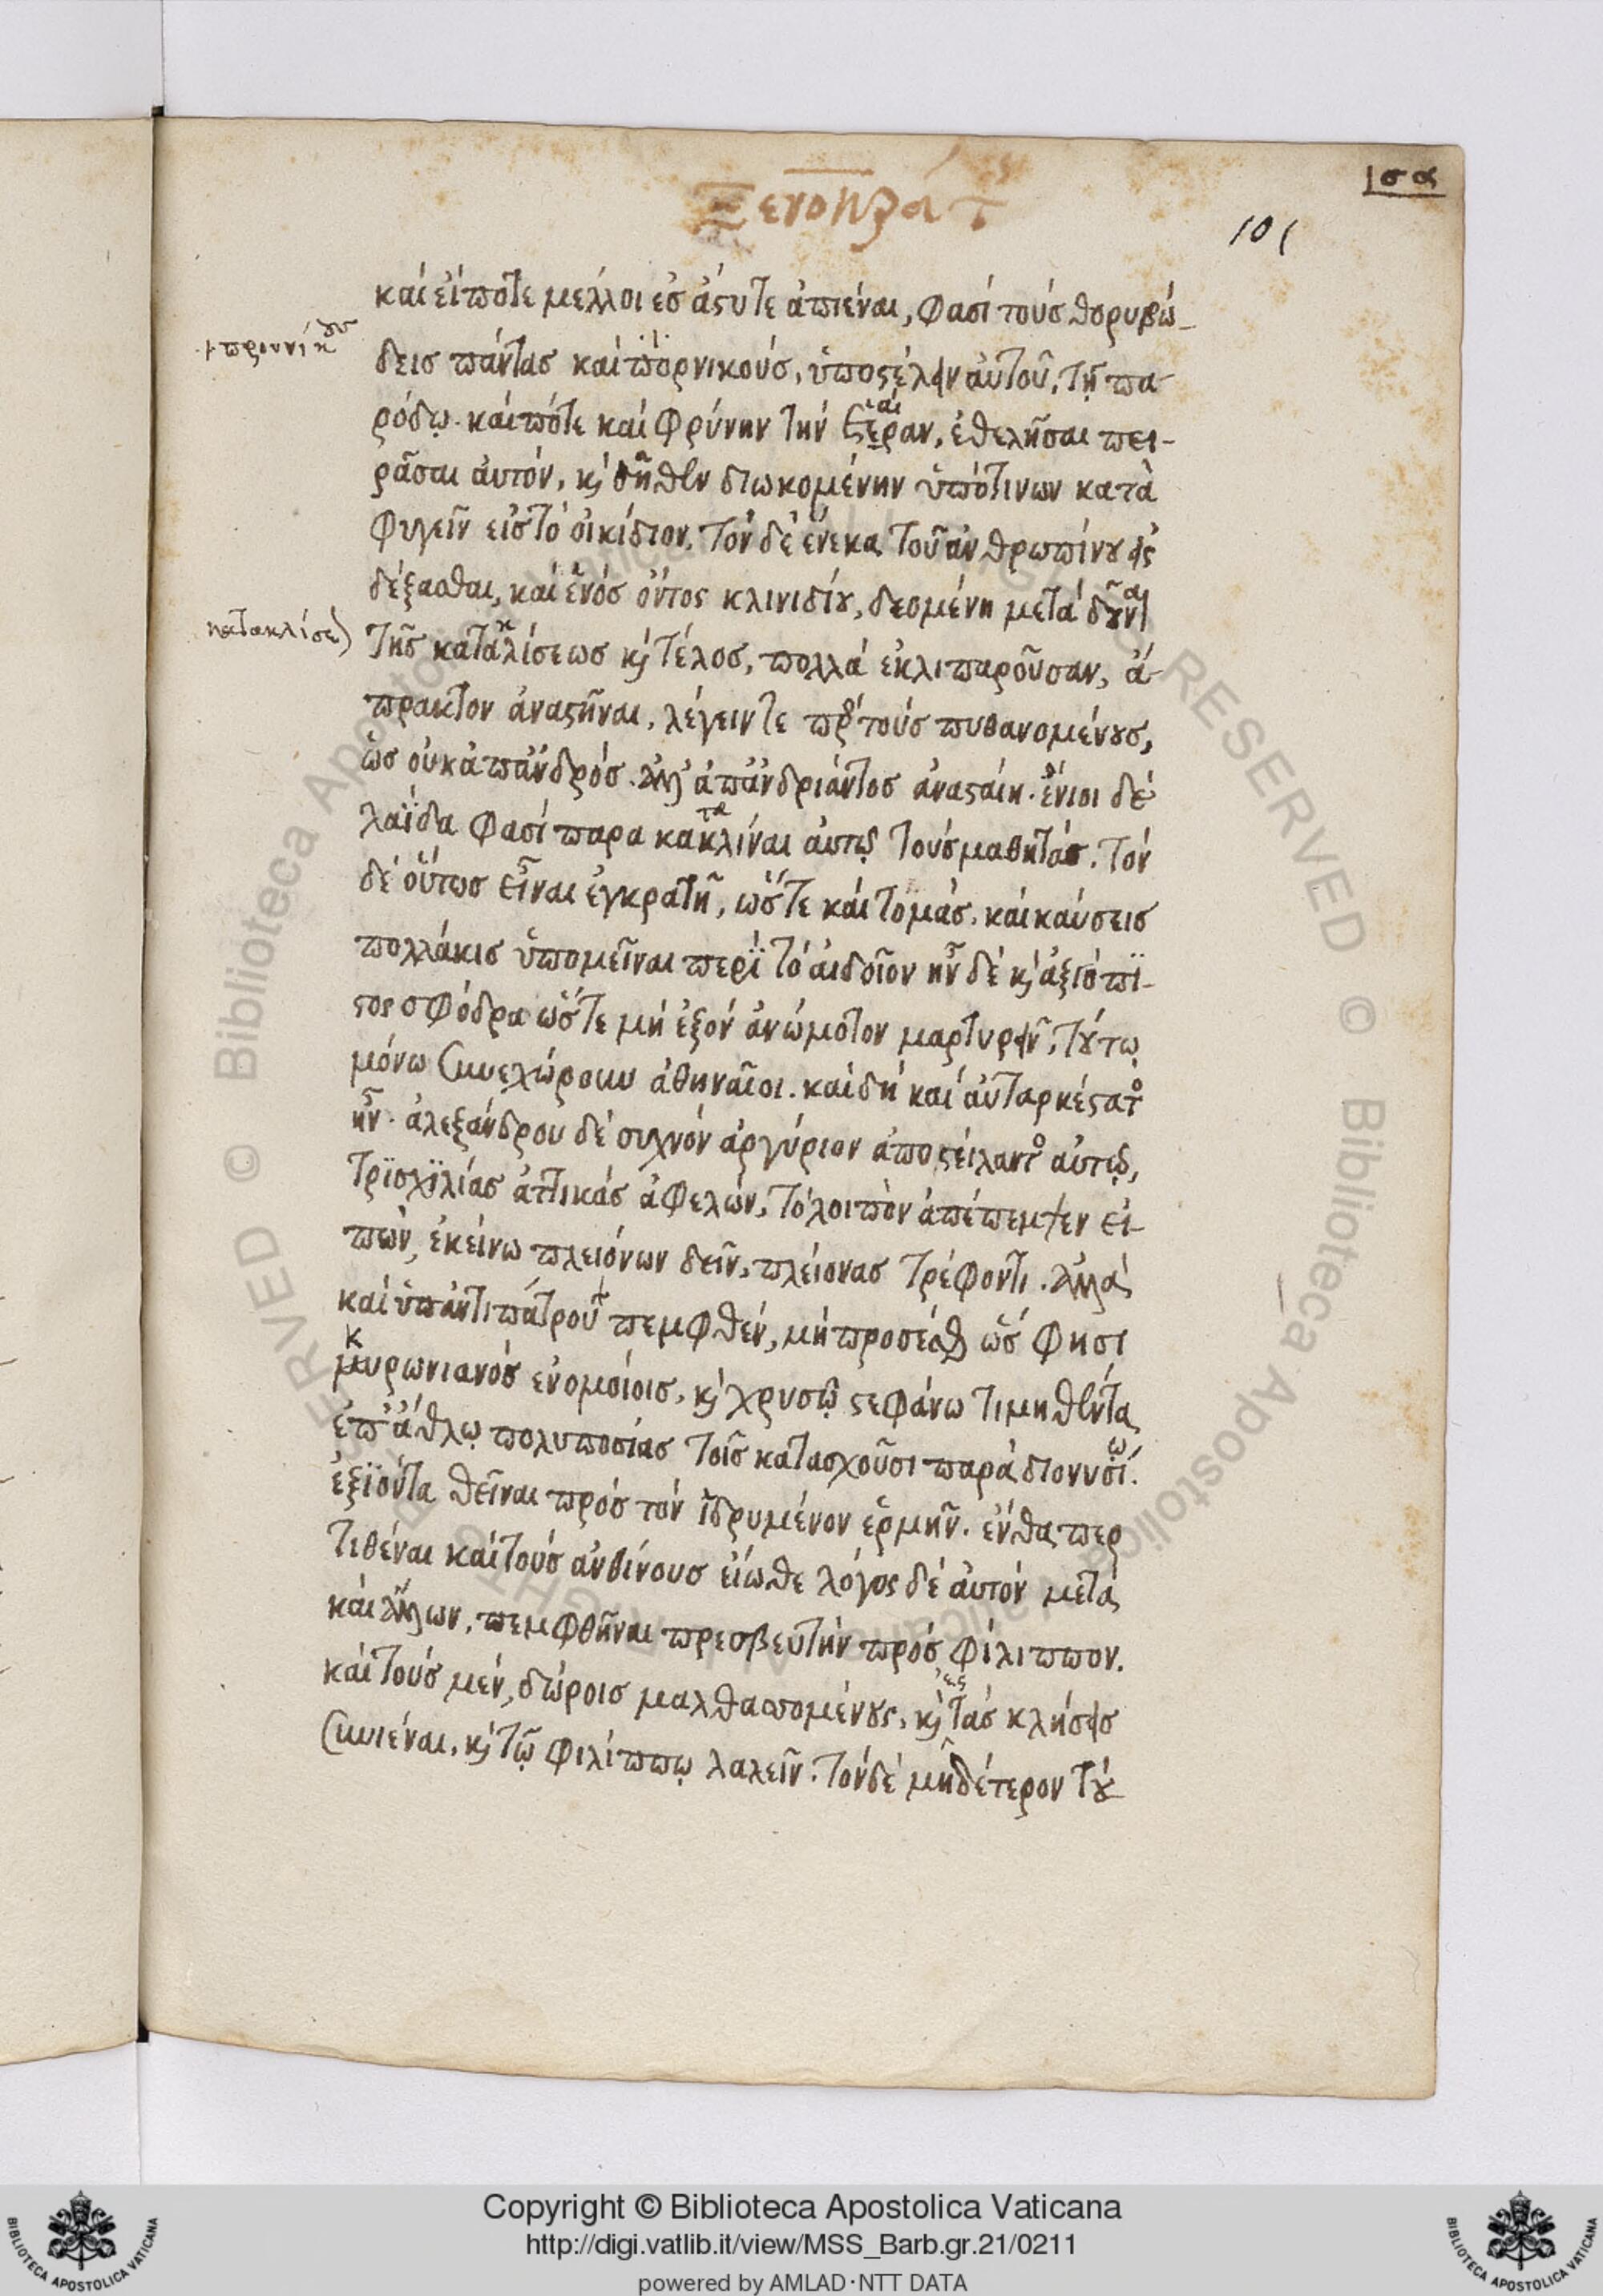 Ξενοκρατ
ισα
101
καὶ εἴποτε μέλλοι ἐσ ἄστυ τε ἀπιέναι, φασὶ τοὺσ θορυβώ-
προυνίκους
δεισ πάντασ καὶ πορνικοὺσ, ὑποστέλειν αὐτοῦ, τῇ πα
ρόδῳ. καὶ πότε καὶ φρύνην τὴν ἑταίραν, ἐθελῆσαι πει-
ρᾶσαι αὐτόν, καὶ δῆθεν διωκομένην ὑπό τινων κατα
φυγεῖν εἰσ τὸ οἰκίδιον. τὸν δὲ ἕνεκα τοῦ ἀνθρωπίνου εἰσ
δέξασθαι, καὶ ἑνόσ ὄντος κλινιδίου, δεομένη μεταδοῦναι
κατακλίσε
τῆσ κατακλίσεωσ καὶ τέλοσ, πολλὰ ἐκλιπαροῦσαν, ἄ-
πρακτον ἀναστῆναι. λέγειν τε πρὸς τοὺσ πυθανομένουσ,
ὡσ οὐκ ἀπ ἀνδρόσ. ἀλλ' ἀπ ἀνδριάντοσ ἀνασταίη. ἔνιοι δὲ
λαΐδα φασὶ παρακατακλίναι αὐτῷ τοὺσ μαθητάσ. τὸν
δὲ οὕτωσ εἶναι ἐγκρατῆ, ὥστε καὶ τομὰσ. καὶ καύσεισ
πολλάκισ ὑπομεῖναι περὶ τὸ αἰδοῖον ἦν δὲ καὶ ἀξιόπι-
στος σφόδρα ὥστε μὴ ἐξὸν ἀνώμοτον μαρτυρεῖν, τούτῳ
μόνω συνεχώρουν ἀθηναῖοι. καὶ δὴ καὶ αὐταρκέστατος
ἦν. ἀλεξάνδρου δὲ συχνὸν ἀργύριον ἀποστείλαντος αὐτῷ,
τρισχιλίασ ἀττικὰσ ἀφελών, τὸ λοιπὸν ἀπέπεμψεν εἰ-
πὼν, ἐκείνω πλειόνων δεῖν, πλείονασ τρέφοντι. ἀλλὰ
καὶ ὑπ ἀντιπάτρου πεμφθέν, μὴ προσέσθαι ὥσ φησι
μυρωνιανὸσ ἐν ομοίοισ, καὶ χρυσῷ στεφάνω τιμηθέντα
ἐπ' ἄθλῳ πολυποσίασ τοῖσ κατασχοῦσι παρὰ διοννσίω.
ἐξιόντα θεῖναι πρὸσ τὸν ἱδρυμένον ἑρμῆν. ἔνθα περ
τιθέναι καὶ τοὺσ ἀνθίνουσ εἴωθε λόγος δὲ αὐτὸν μετὰ
καὶ ἄλλων, πεμφθῆναι πρεσβευτὴν πρὸσ φίλιππον.
καὶ τοὺσ μὲν, δώροισ μαλθασσομένους, καὶ ἐς τὰσ κλήσεισ
συνιέναι. καὶ τῷ φιλίππῳ λαλεῖν. τὸν δὲ μηδέτερον τού
Copyright © Biblioteca Apostolica Vaticana
http://digi.vatlib.it/view/MSS_Barb.gr.21/0211
powered by AMLAD·NTT DATA
BIBLIOTECA APOSTOLICA VATICANA
BIBLIOTECA APOSTOLICA VATICANA